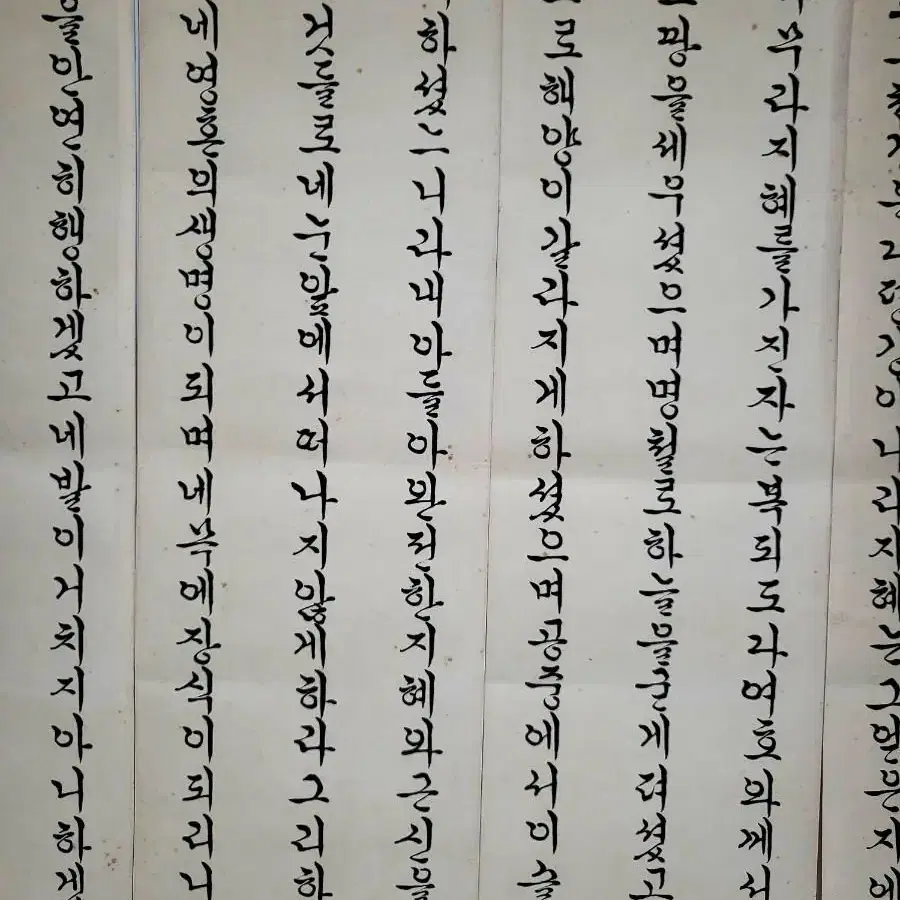 평강이니라지혜는그얻은자에
무라지혜를가진자는복되도다여호와께서
땅을세우셨으며명철로하늘을굳게펴셨고
로해양이갈라지게하셨으며공중에서이슬
하셨느니라내아들아완전한지혜와근신을
것들로네눈앞에서떠나지않게하라그리하
네영혼의생명이되며네목에장식이되리니
을안연히행하겠고네발이거치지아니하겠